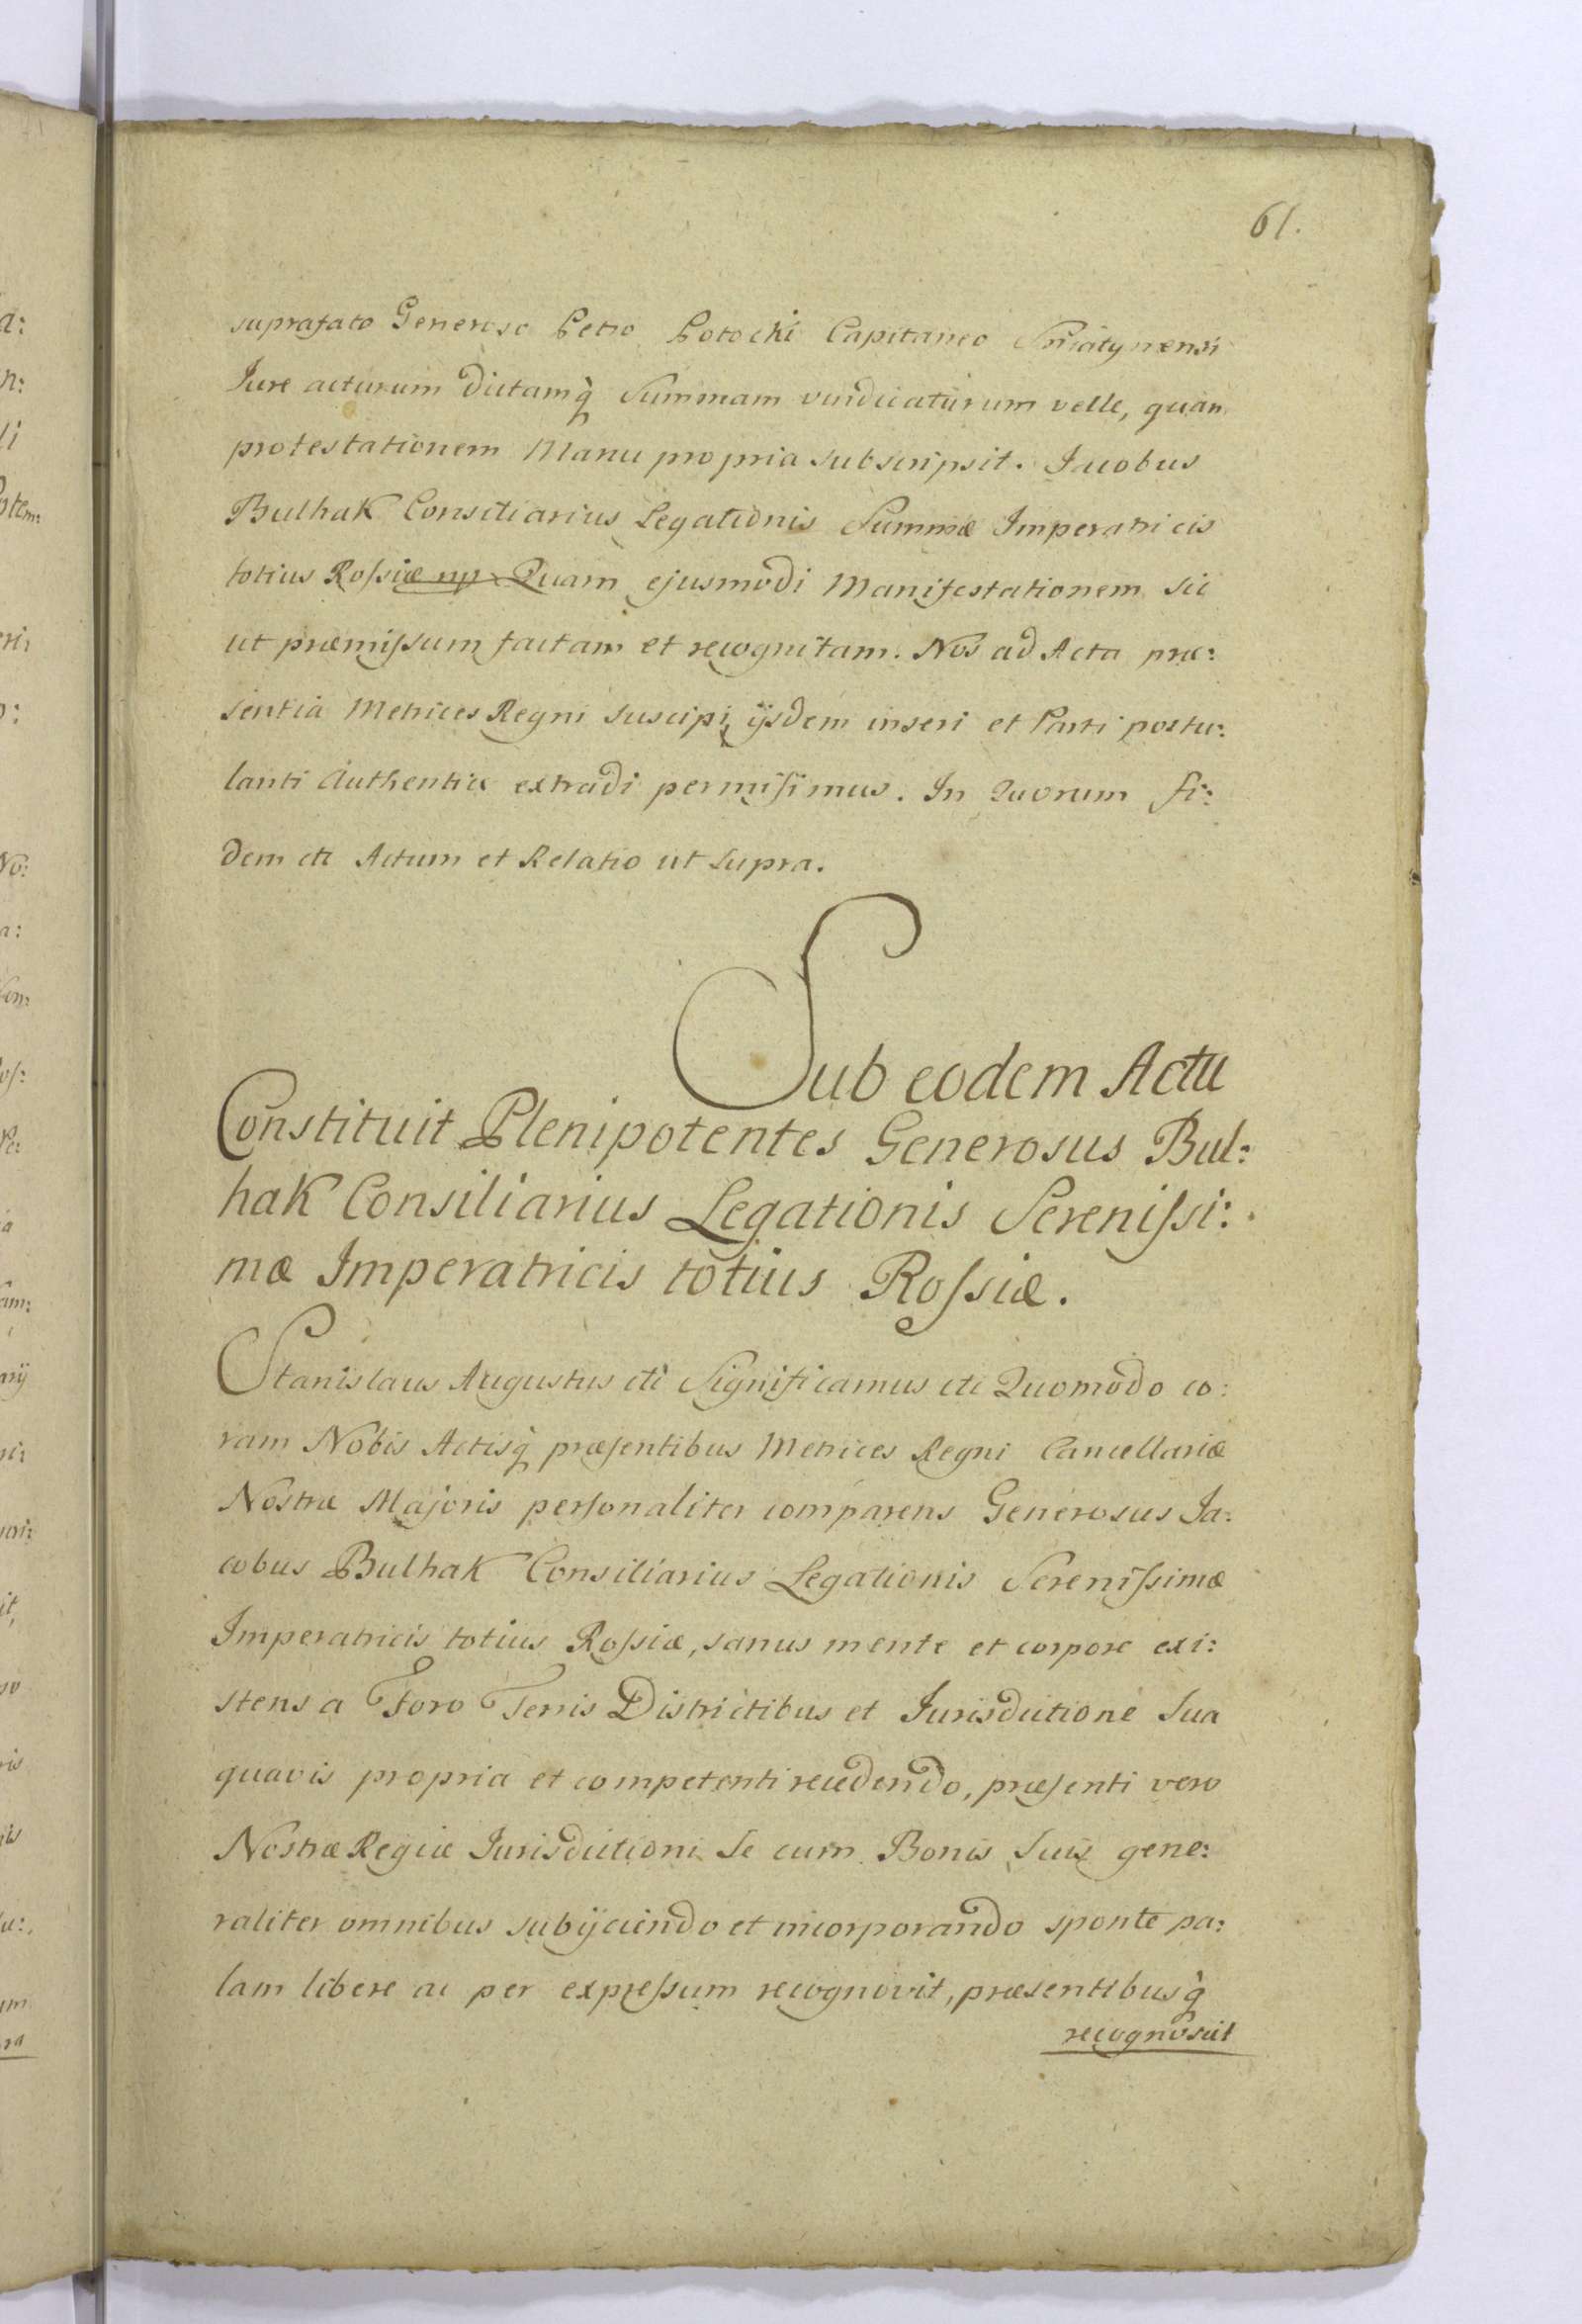 61.
suprafato Generoso Petro Potocki Capitaneo Sniatynensi
Jure acturum dictamq̀ Summam vindicaturum velle, quam
protestationem Manu propria subscripsit. Jacobus
Bulhak Consiliarius Legationis Summæ Imperatricis
totius Roſsiæ mp. Quam ejusmodi Manifestationem sic
ut præmiſsum factam et recognitam. Nos ad Acta præ:
sentia Metrices Regni suscipi, ijsdem inseri et Parti postu:
lanti Authentice extradi permiſimus. In Quorum fi:
dem etc Actum et Relatio ut supra.
Sub eodem Actu
Constituit Plenipotentes Generosus Bul:
hak Consiliarius Legationis Sereniſsi:
mæ Imperatricis totius Roſsiæ.
Stanislaus Augustus etc Significamus etc Quomodo co:
ram Nobis Actisq̀ præſentibus Metrices Regni Cancellariæ
Nostræ Majoris perſonaliter comparens Generosus Ja:
cobus Bulhak Consiliarius Legationis Sereniſsimæ
Imperatricis totius Roſsiæ, sanus mente et corpore exi:
stens a Foro Terris Districtibus et Jurisdictione sua
quavis propria et competenti recedendo, præſenti vero
Nostræ Regiæ Jurisdictioni se cum Bonis suis gene:
raliter omnibus subijciendo et incorporando sponte pa:
lam libere ac per expreſsum recognovit, præsentibusq̀
recognoscit